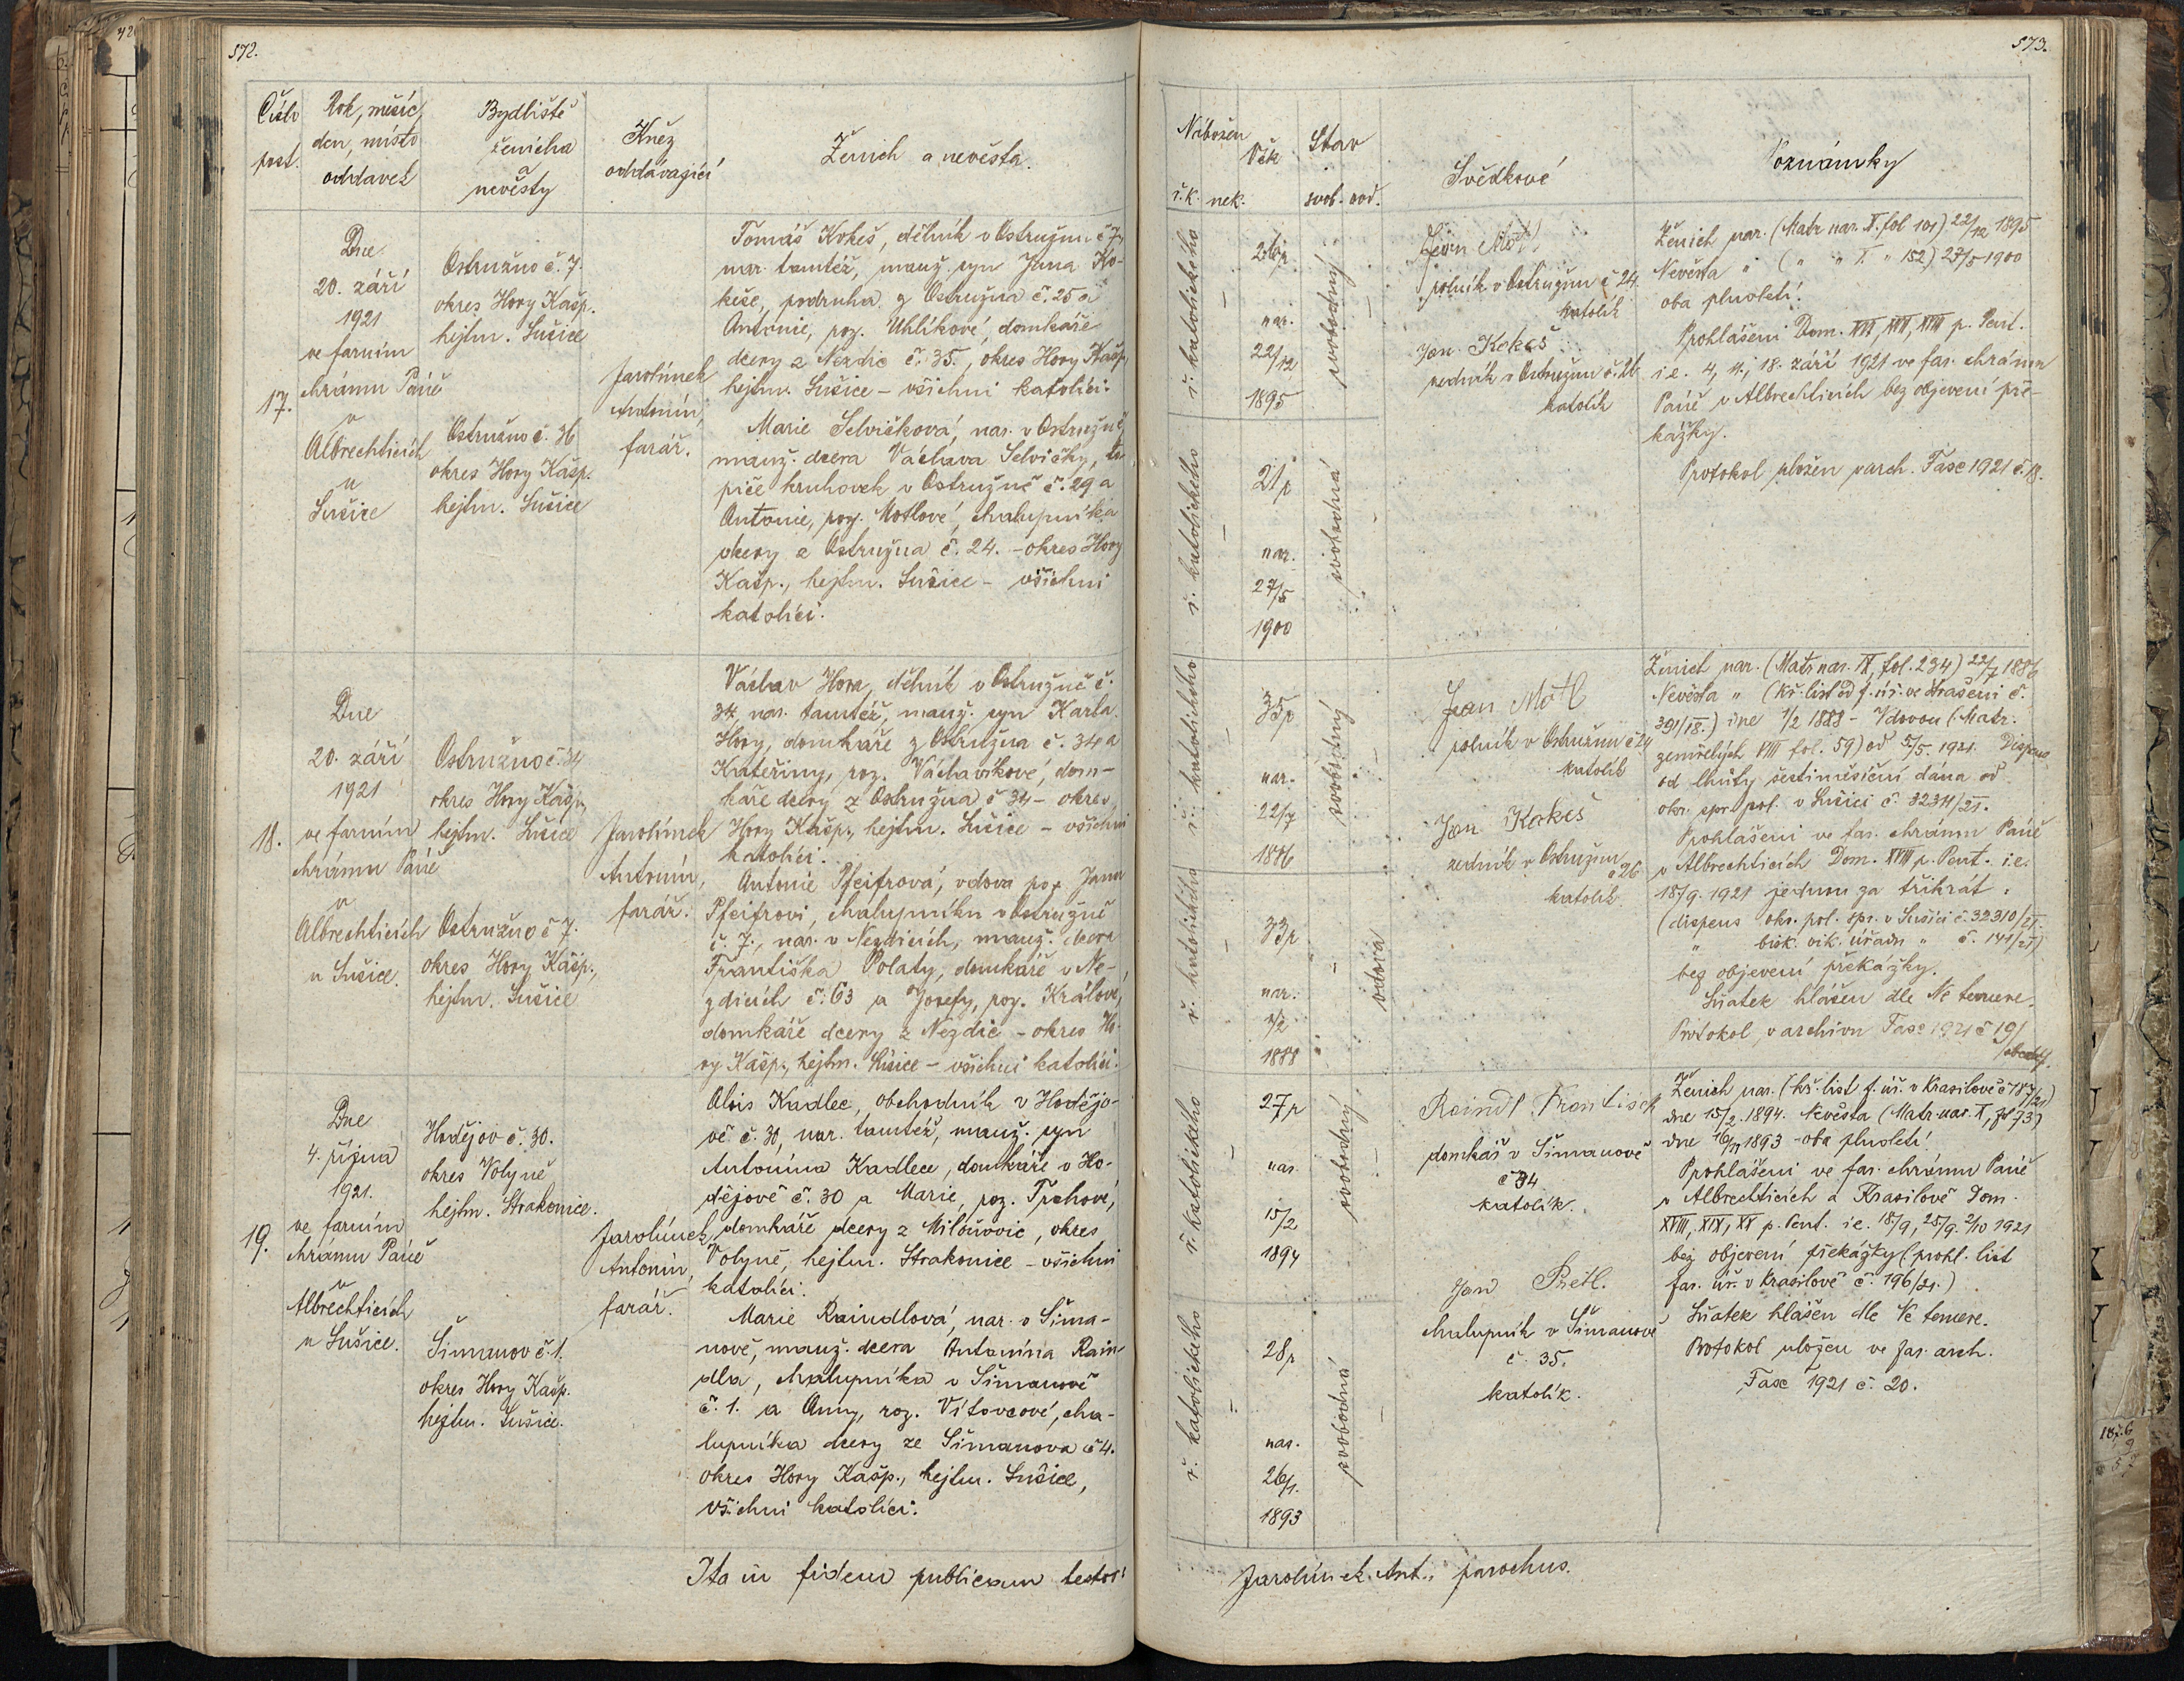 572.
Číslo
post.
Rok, měsíc
den, místo
oddavek
Bydliště
ženicha
a
nevěsty
Kněz
oddávající
Ženich a nevěsta.
17.
Dne
20. září
1921
ve farním
chrámu Páně
v
Albrechticích
u
Sušice
Ostružno č. 7.
okres Hory Kašp.
hejtm. Sušice
Ostružno č. 36
okres Hory Kašp.
hejtm. Sušice
Jarolímek
Antonín,
farář.
Tomáš Kokeš, dělník v Ostružnu č 7,
nar. tamtéž, manž. syn Jana Ko-
keše, podruha z Ostružna č. 25 a
Antonie, roz. Uhlíkové, domkáře
dcery z Nezdic č. 35., okres Hory Kašp.,
hejtm. Sušice – všichni katolíci.
Marie Selvičková, nar. v Ostružně,
manž. dcera Václava Selvičky, to
piče kruhovek v Ostružně č. 29 a
Antonie, roz. Motlové, chalupníka
dcery z Ostružna č. 24. – okres Hory
Kašp., hejtm. Sušice – všichni
katolíci.
18.
Dne
20. září
1921
ve farním
chrámu Páně
v
Albrechticích
u Sušice.
Ostružno č. 34
okres Hory Kašp.,
hejtm. Sušice
Ostružno č 7.
okres Hory Kašp.,
hejtm. Sušice
Jarolímek
Antonín,
farář.
Václav Hora, dělník v Ostružně č.
34, nar. tamtéž, manž. syn Karla
Hory, domkáře z Ostružna č. 34 a
Kateřiny, roz. Václavíkové, dom-
káře dcery z Ostružna č 34 – okres
Hory Kašp., hejtm. Sušice – všichni
katolíci.
Antonie Pfeifrová, vdova po Janu
Pfeifrovi, chalupníku v Ostružně
č. 7., nar. v Nezdicích, manž. dcera
Františka Polaty, domkáře v Ne-
zdicích č. 63 a Josefy, roz. Králové,
domkáře dcery z Nezdic – okres Ho-
ry Kašp., hejtm. Sušice – všichni katolíci.
19.
Dne
4. října
1921.
ve farním
chrámu Páně
v
Albrechticích
u Sušice.
Hodějov č. 30.
okres Volyně
hejtm. Strakonice.
Šimanov č. 1.
okres Hory Kašp.
hejtm. Sušice.
Jarolímek
Antonín,
farář.
Alois Kadlec, obchodník v Hodějo-
vě č. 30, nar. tamtéž, manž. syn
Antonína Kadlece, domkáře v Ho-
dějově č. 30 a Marie, roz.
domkáře dcery z Milouovic, okres
Volyně, hejtm. Strakonice – všichni
katolíci.
Marie Raindlová, nar. v Šima-
nově, manž. dcera Antonína Rain-
dla, chalupníka v Šimanově
č. 1. a Anny, roz. Vítovcové, cha-
lupníka dcery ze Šimanova č 4.
okres Hory Kašp., hejtm. Sušice,
všichni katolíci.
Ita in fidem publicam testor:
573.
Nábožen
ř. k. nek.
Věk
Stav
svob. vod.
Svědkové
Poznámky
ř. katolického
–
26 r
nar.
22/12
1895
svobodný
–
ř. katolického
–
21 r
nar.
27/5
1900
svobodná
–
Jan Motl
rolník v Ostružnu č 24.
katolík
Jan Kokeš
zedník v Ostružnu č. 26
katolík
Ženich nar. (Matr nar. X. fol 101) 22/12 1895
Nevěsta " ( " " X. " 152) 27/5 1900
oba plnoletí.
Prohlášeni Dom. XVI, XVII, XVIII p. Pent.
i.e. 4, 11., 18. září 1921 ve far. chrámu
Páně v Albrechticích bez objevení pře-
kážky.
Protokol uložen v arch. Fasc 1921 č. 18.
ř. katolického
–
35 r
nar.
22/7
1886
svobodný
–
ř. katolického
–
33 r
nar.
1/2
1888
–
vdova
Jan Motl
rolník v Ostružnu č 24
katolík
Jan Kokeš
zedník v Ostružnu
č 26
katolík
Ženich nar. (Matr nar. IX, fol. 234) 22/7 1886
Nevěsta " (kř. list od f. úř. ve Strašíni č.
391/18.) dne 1/2 1888 – Vdovou (Matr.
zemřelých VIII fol. 59) od 5/5. 1921. Dispens
od lhůty šestiměsíční dána od
okr. spr. pol. v Sušici č. 32311/21.
Prohlášeni ve far. chrámu Páně
v Albrechticích Dom. XVIII p. Pent. i.e.
18/9. 1921 jednou za třikrát.
(dispens okr. pol. spr. v Sušici č. 32310/21.
" bisk. vik. úřadu " č. 141/21)
bez objevení překážky.
Sňatek hlášen dle Ne temere.
Protokol v archivu Fasc 1921 č 19/
ř. katolického
–
27 r
nar.
15/2
1894
svobodný
–
ř. katolického
–
28 r
nar.
26/1.
1893
svobodná
–
Raindl František
domkář v Šimanově
č 34
katolík.
Jan
chalupník v Šimanově
č. 35.
katolík.
Ženich nar. (kř. list f. úř. v Krasilově č 187/21)
dne 15/2. 1894. Nevěsta (Matr. nar. X, fol 73)
dne 1893 – oba plnoletí.
Prohlášeni ve far. chrámu Páně
v Albrechticích a Krasilově Dom.
XVIII, XIX, XX p. Pent. i.e. 18/9, 25/9. 2/10 1921
bez objevení překážky (prohl. list
far. úř. v Krasilově č. 196/21.)
Sňatek hlášen dle Ne temere.
Protokol uložen ve far. arch.
Fasc 1921 č. 20.
Jarolímek Ant., parochus.